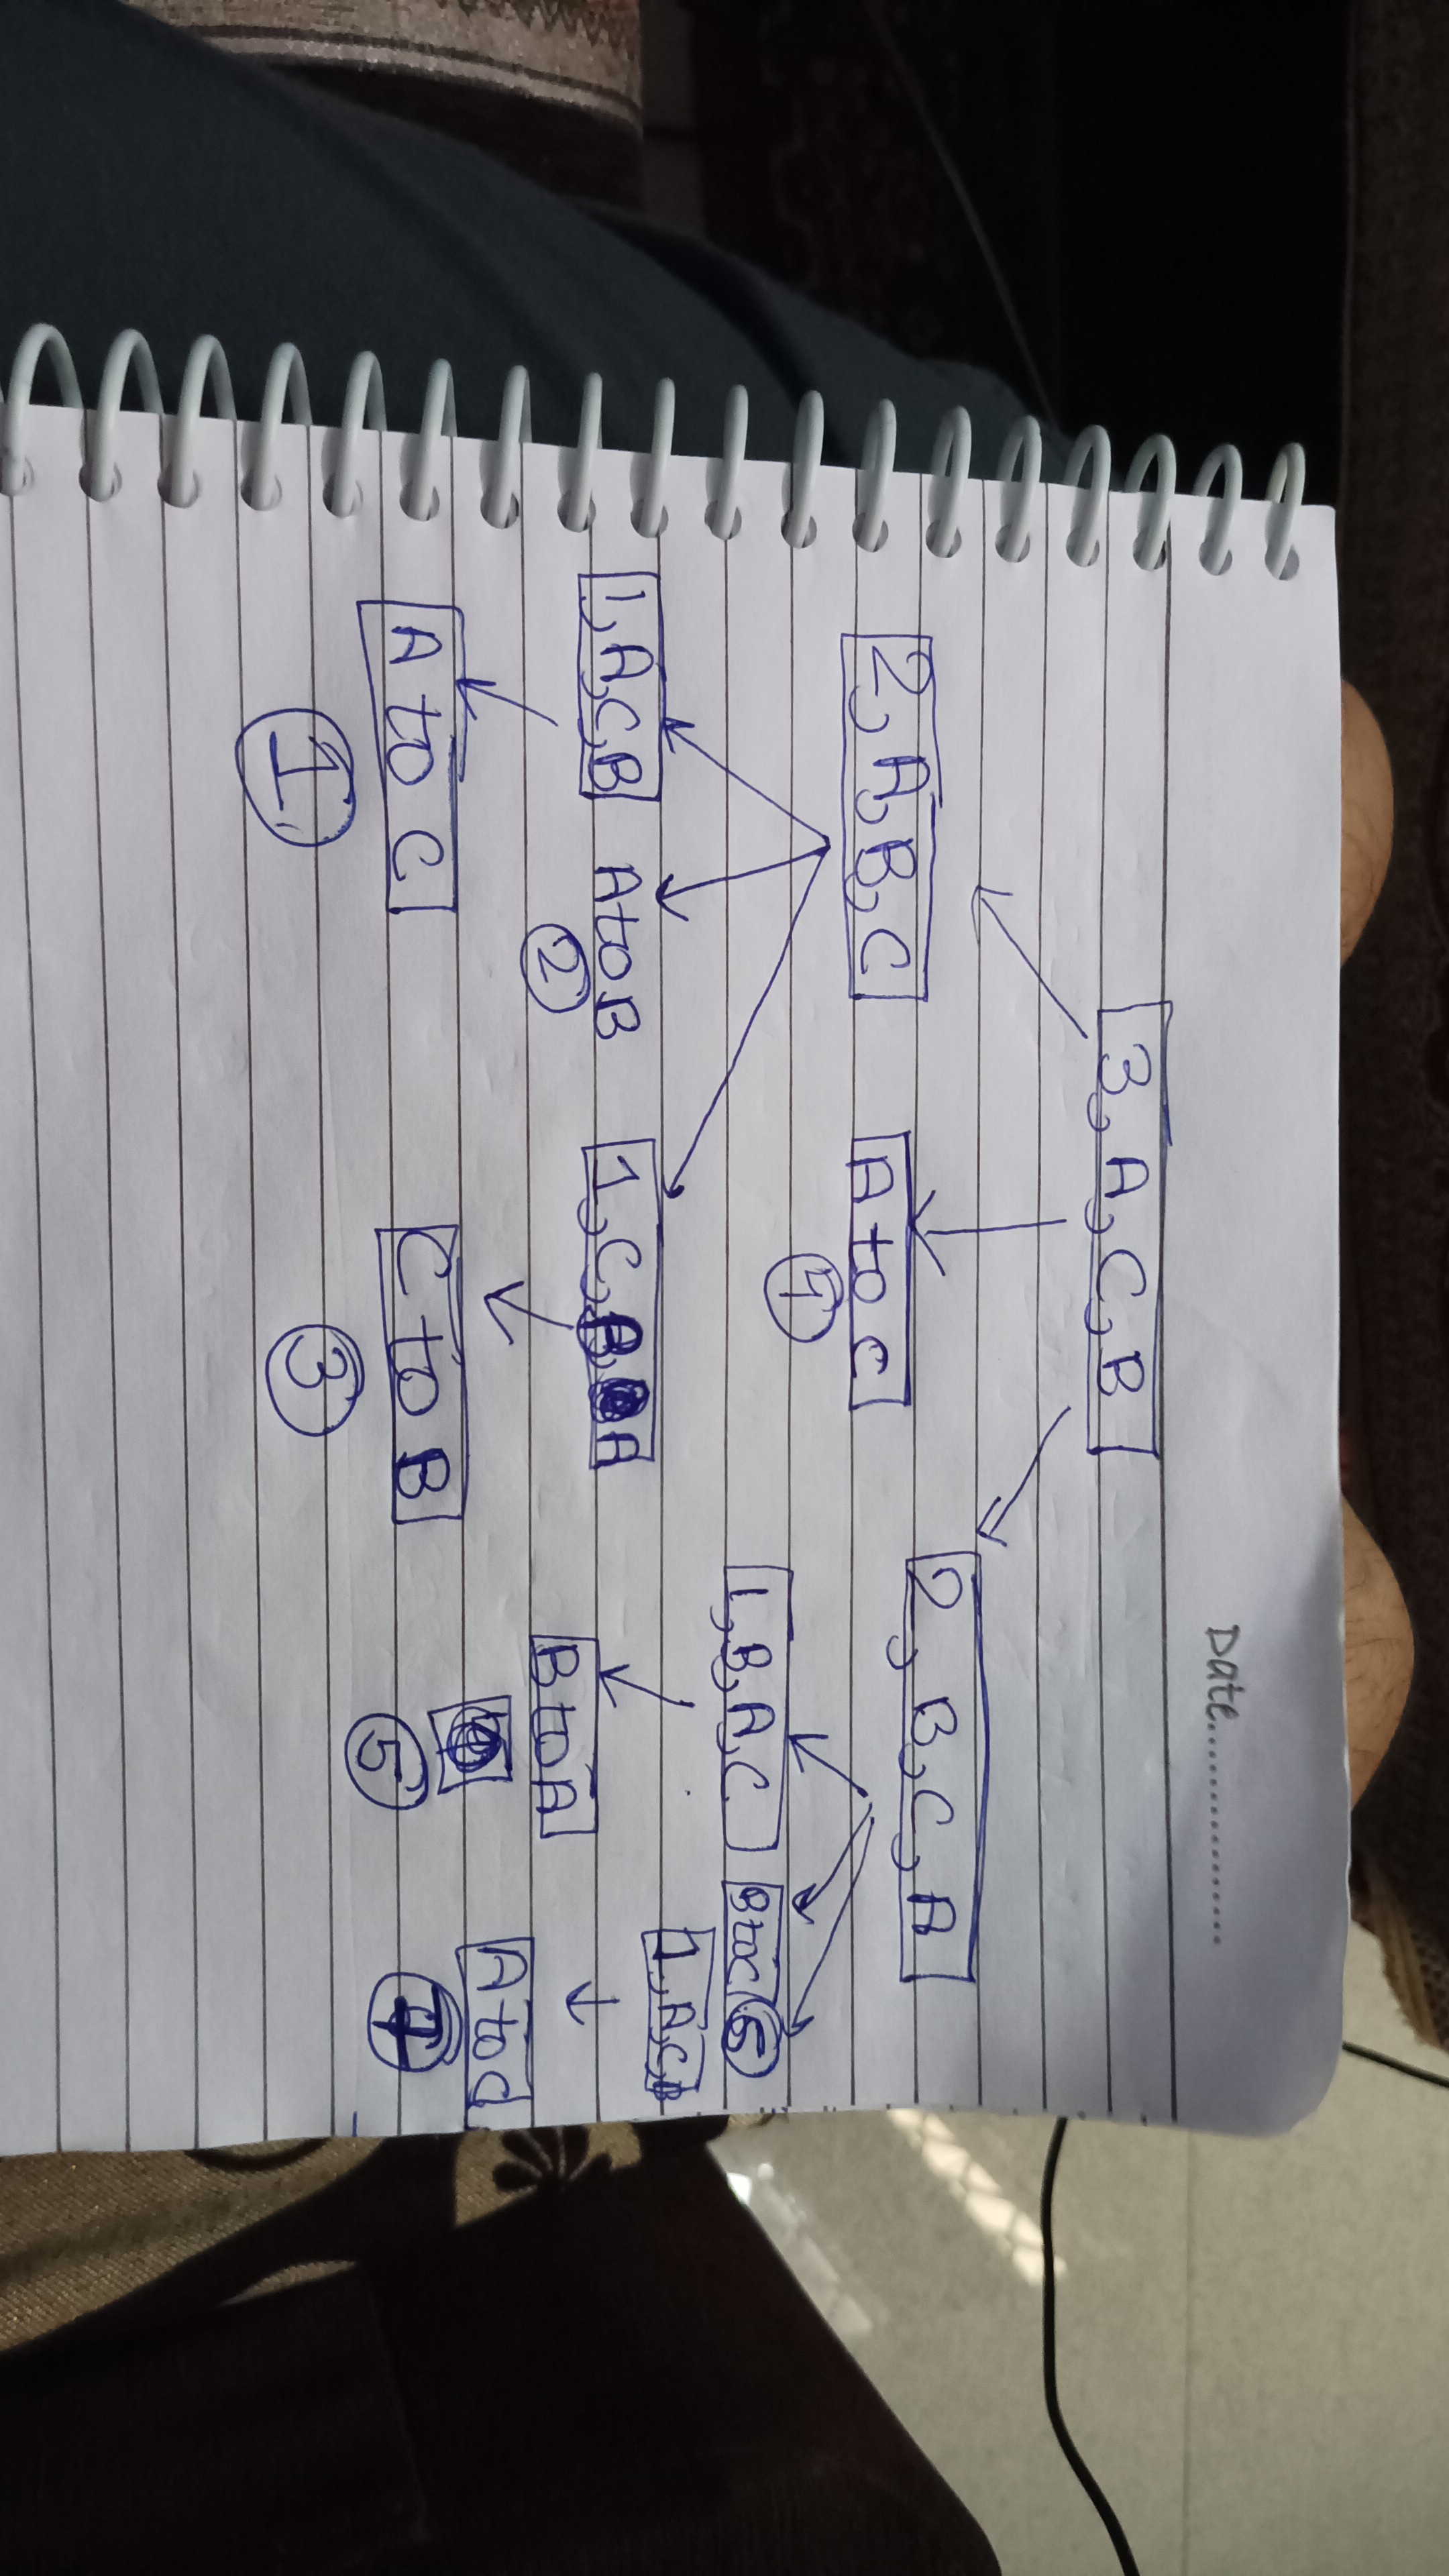 Date....................
3, A, C, B
2, A, B, C
A to C
2, B, C, A
1, A, C, B
A to B
2
1, C, B, A
1, B, A, C
B to C 6
1, A, C, B
A to C
1
C to B
3
B to A
5
A to C